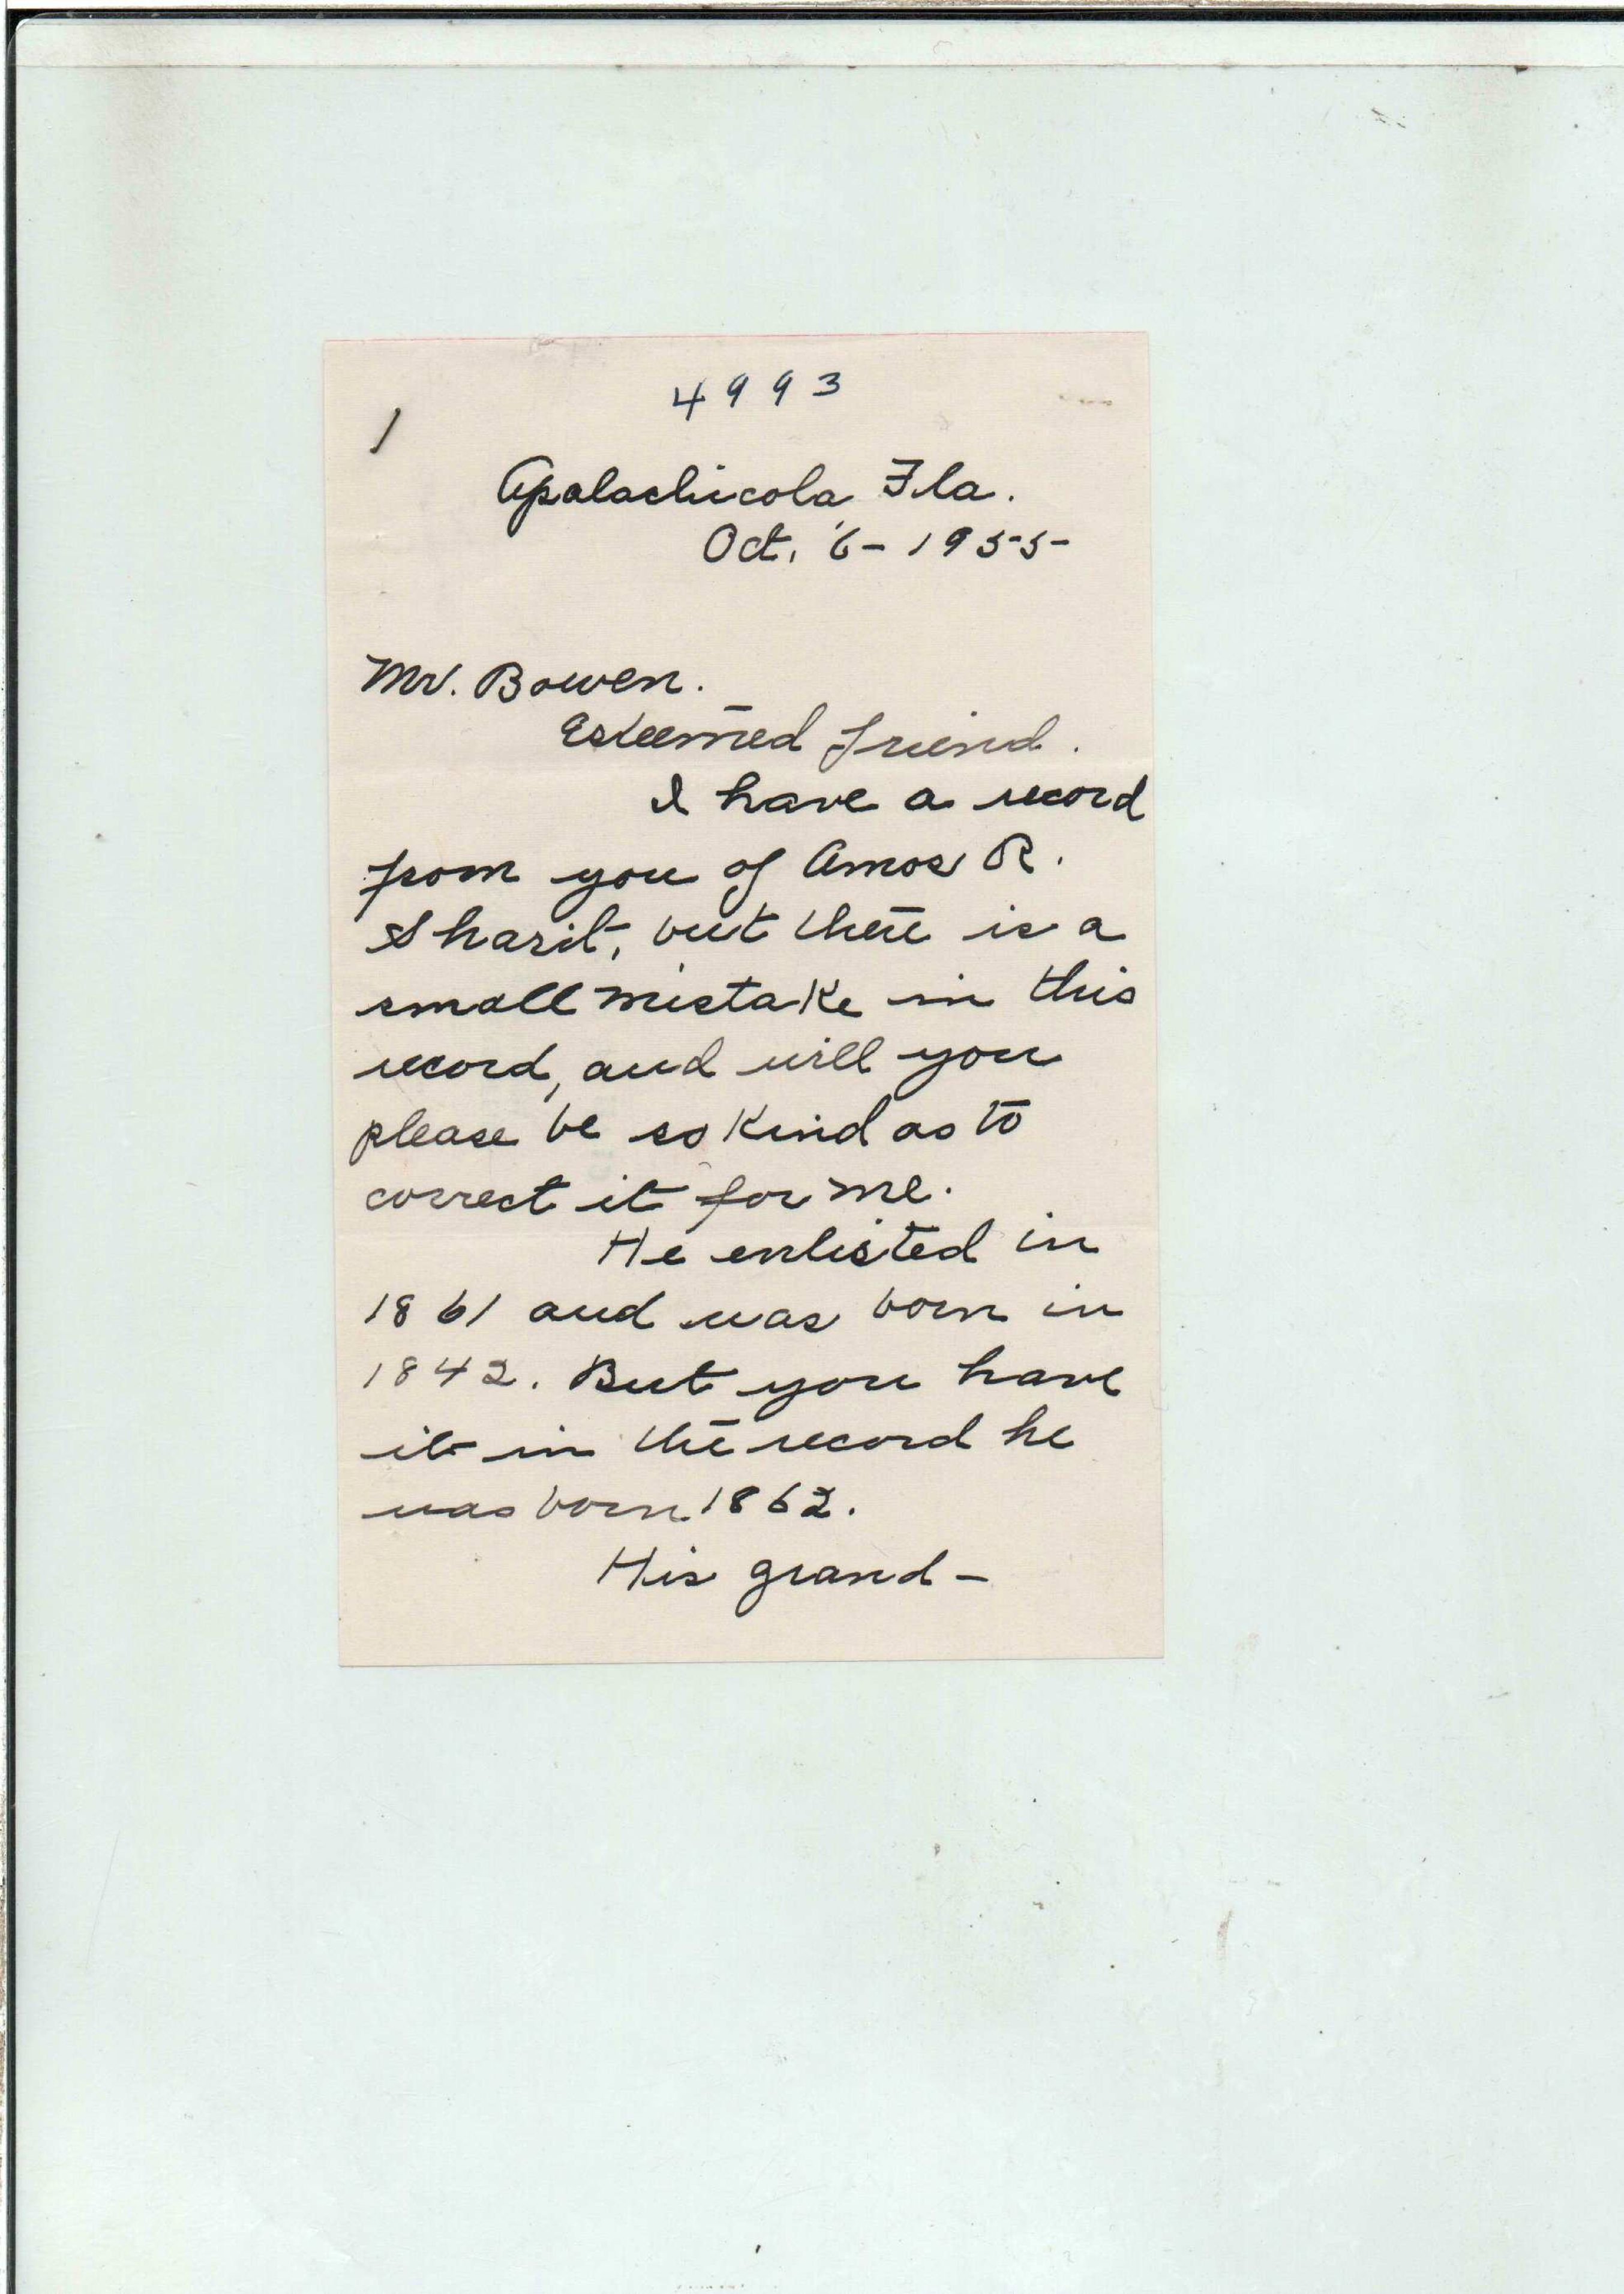 4993
1
Apalachicola Fla.
Oct. 6 - 1955
Mr. Bowen.
Esteemed friend.
I have a record
from you of Amos R.
Sharit, but there is a
small mistake in this
record, and will you
please be so kind as to
correct it for me.
He enlisted in
1861 and was born in
1842. But you have
it in the record he
was born 1862.
His grand-